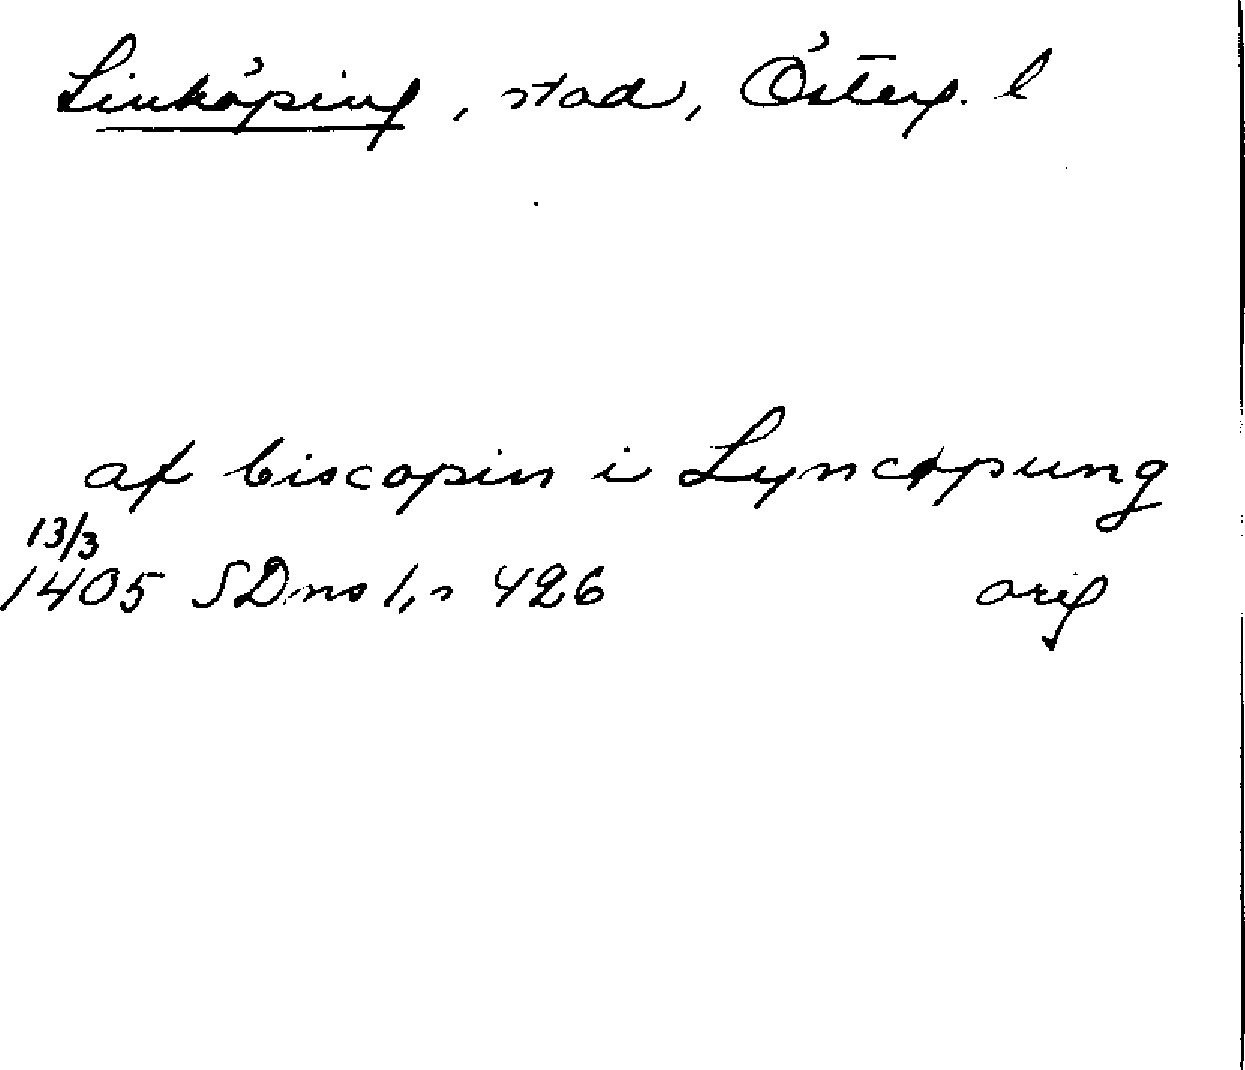 Linköping, stad, Österg. l
af biscopin i Lyncøpung
13/3
1405 SDns 1, n 426 orig